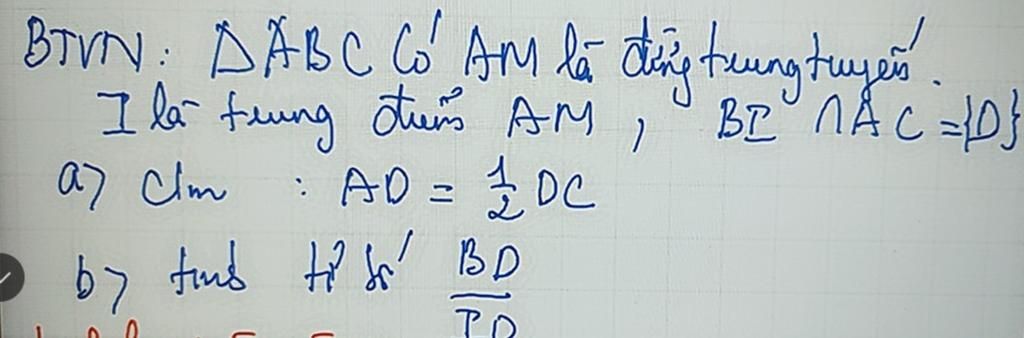 BTVN: ΔABC Có AM là đường trung tuyến.
I là trung điểm AM, BI ∩ AC = {D}
a) C/m : AD = 1/2 DC
b) tính tỉ số BD/ID